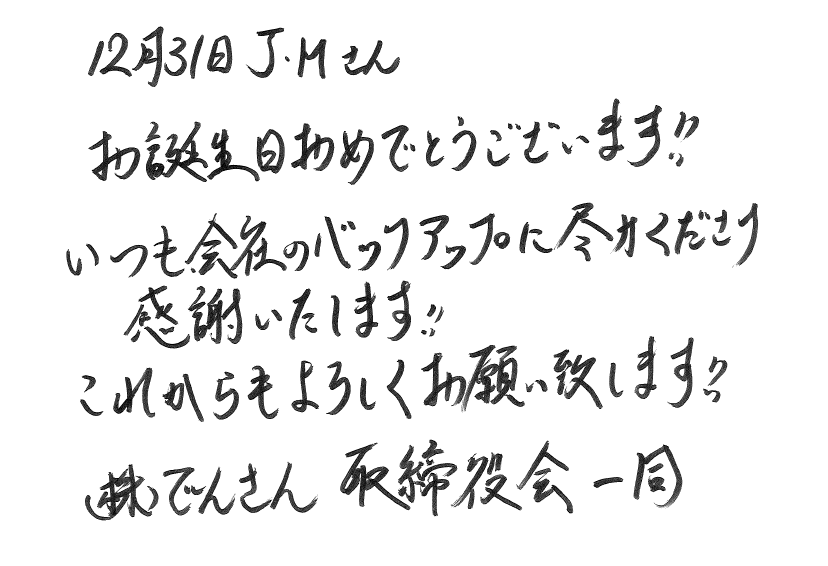 12月31日 J.Mさん
お誕生日おめでとうございます!!
いつも会社のバックアップに尽力くださり
感謝いたします!!
これからもよろしくお願い致します!!
(株)でんさん 取締役会一同